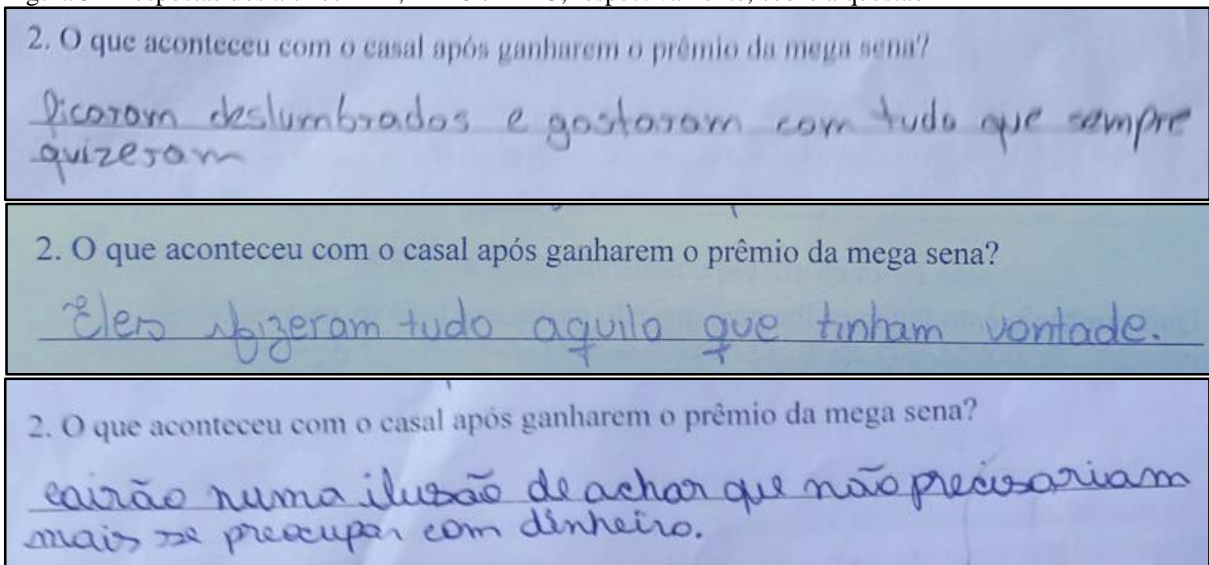 2. O que aconteceu com o casal após ganharem o prêmio da mega sena?
Ficaram deslumbrados e gastaram com tudo que sempre
quizeram
2. O que aconteceu com o casal após ganharem o prêmio da mega sena?
Eles fizeram tudo aquilo que tinham vontade.
2. O que aconteceu com o casal após ganharem o prêmio da mega sena?
cairão numa ilusão de achar que não precisariam
mais se preocupar com dinheiro.